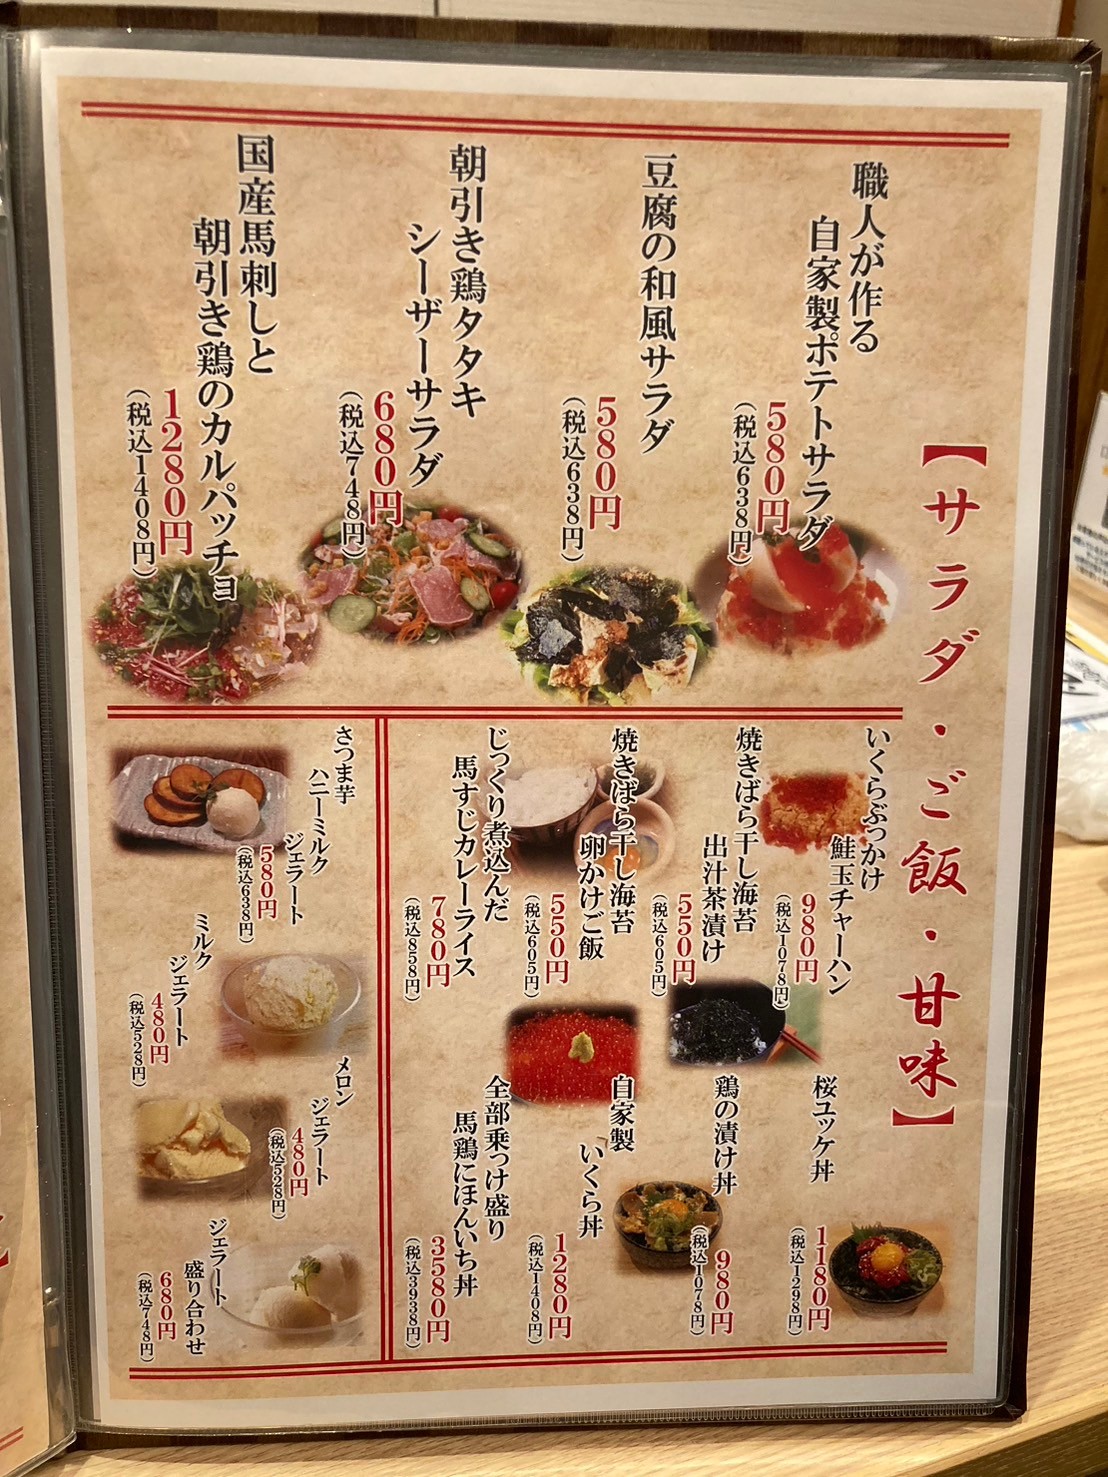 【サラダ・ご飯・甘味】
職人が作る
自家製ポテトサラダ
580円
(税込638円)
豆腐の和風サラダ
580円
(税込638円)
朝引き鶏タタキ
シーザーサラダ
680円
(税込748円)
国産馬刺しと
朝引き鶏のカルパッチョ
1280円
(税込1408円)
いくらぶっかけ
鮭玉チャーハン
980円
(税込1078円)
焼きばら干し海苔
出汁茶漬け
550円
(税込605円)
焼きばら干し海苔
卵かけご飯
550円
(税込605円)
じっくり煮込んだ
馬すじカレーライス
780円
(税込858円)
桜ユッケ丼
1180円
(税込1298円)
鶏の漬け丼
980円
(税込1078円)
自家製
いくら丼
1280円
(税込1408円)
全部乗っけ盛り
馬鶏にほんいち丼
3580円
(税込3938円)
さつま芋
ハニーミルク
ジェラート
580円
(税込638円)
ミルク
ジェラート
480円
(税込528円)
メロン
ジェラート
480円
(税込528円)
ジェラート
盛り合わせ
680円
(税込748円)